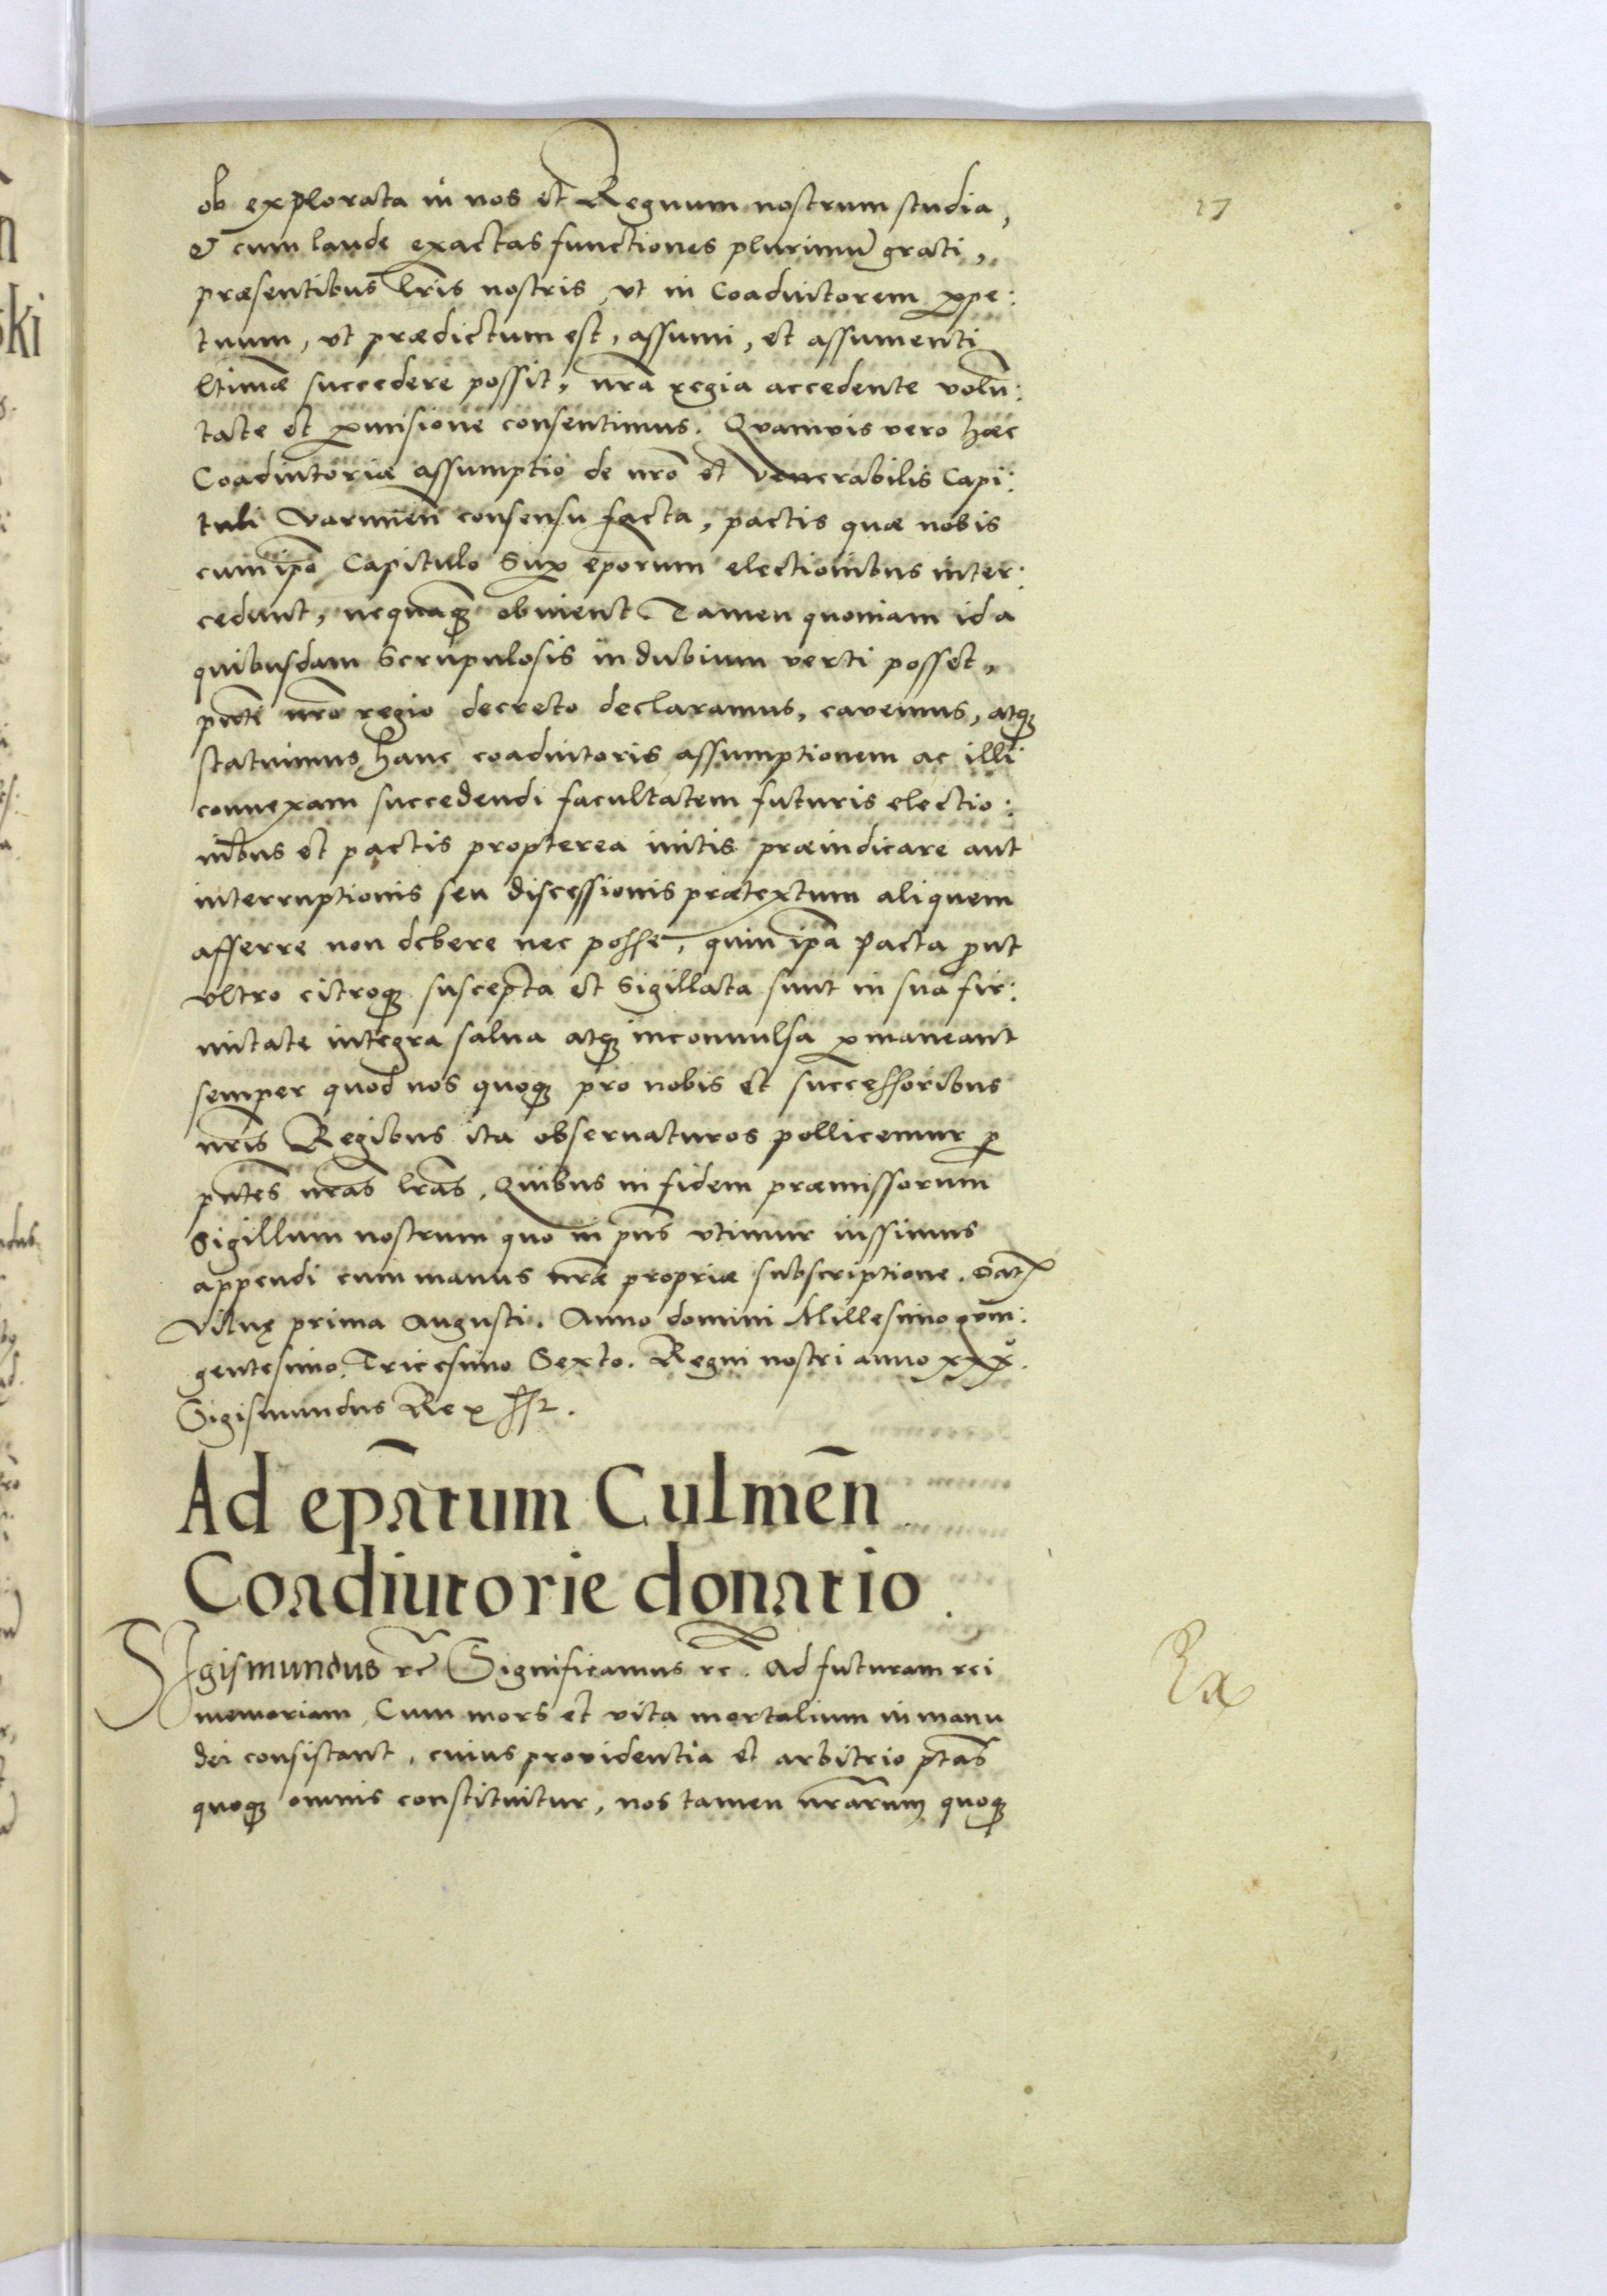 17
ob explorata in nos et Regnum nostrum studia,
& cum laude exactas functiones plurimū grati,
præsentibus lr̄is nostris, vt in Coadiutorem ꝑpe:
tuum, vt prædictum est, assumi, et assumenti
ltimæ succedere possit, nr̄a regia accedente volū:
tate et ꝑmisione consentimus. Quamvis vero hæc
Coadiutoriæ assumptio de nrō et Venerabilis Capi:
tuli Varmień consensu facta, pactis quæ nobis
cum ip̄o Capitulo Suꝑ ep̄orum electionibus inter:
cedunt, nequaꝙ̄ obuient. Tamen quoniam id a
quibusdam Scrupulosis in dubium verti posset,
pn̄ti nrō regio decreto declaramus, cavemus, atqꝫ
statuimus hanc coadiutoris assumptionem ac illi
connexam succedendi facultatem futuris electio:
nibus et pactis propterea initis præiudicare aut
interruptionis seu discessionis prætextum aliquem
afferre non debere nec posse, quin ip̄a Pacta ꝓut
vltro citroqꝫ suscepta et Sigillata sunt in sua fir:
mitate integra salua atqꝫ inconuulsa ꝑmaneant
semper quod nos quoqꝫ pro nobis et successoribus
nr̄is Regibus ita obseruaturos pollicemur ꝑ
pn̄tes nr̄as lr̄as, Quibus in fidem præmissorum
Sigillum nostrum quo in pn̄s vtimur iussimus
appendi cum manus nr̄æ propriæ subscriptione. Dat
Vilnę prima Augusti. Anno domini Millesimo qvin:
gentesimo Tricesimo Sexto. Regni nostri anno xxx.
Sigismundus Rex sst.
Ad ep̄atum Culmeń
Coadiutorie donatio.
SIgismundus rc̄ Significamus rc̄. Ad futuram rei
memoriam, Cum mors et vita mortalium in manu
dei consistant, cuius providentia et arbitrio ptās
quoqꝫ omnis constituitur, nos tamen nr̄arum quoqꝫ